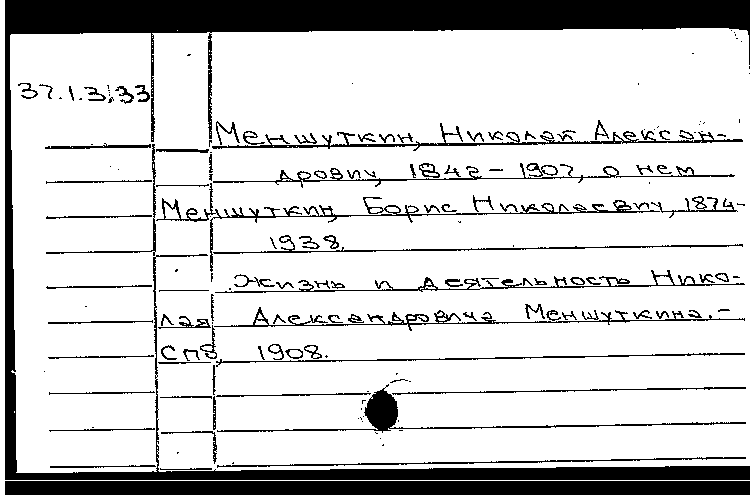 37.1.3.33
Меншуткин, Николай Алексан-
дрович, 1842-1907, о нем
Меншуткин, Борис Николаевич, 1874-
1938.
Жизнь и деятельность Нико-
лая Александровича Меншуткина.-
СПб, 1908.